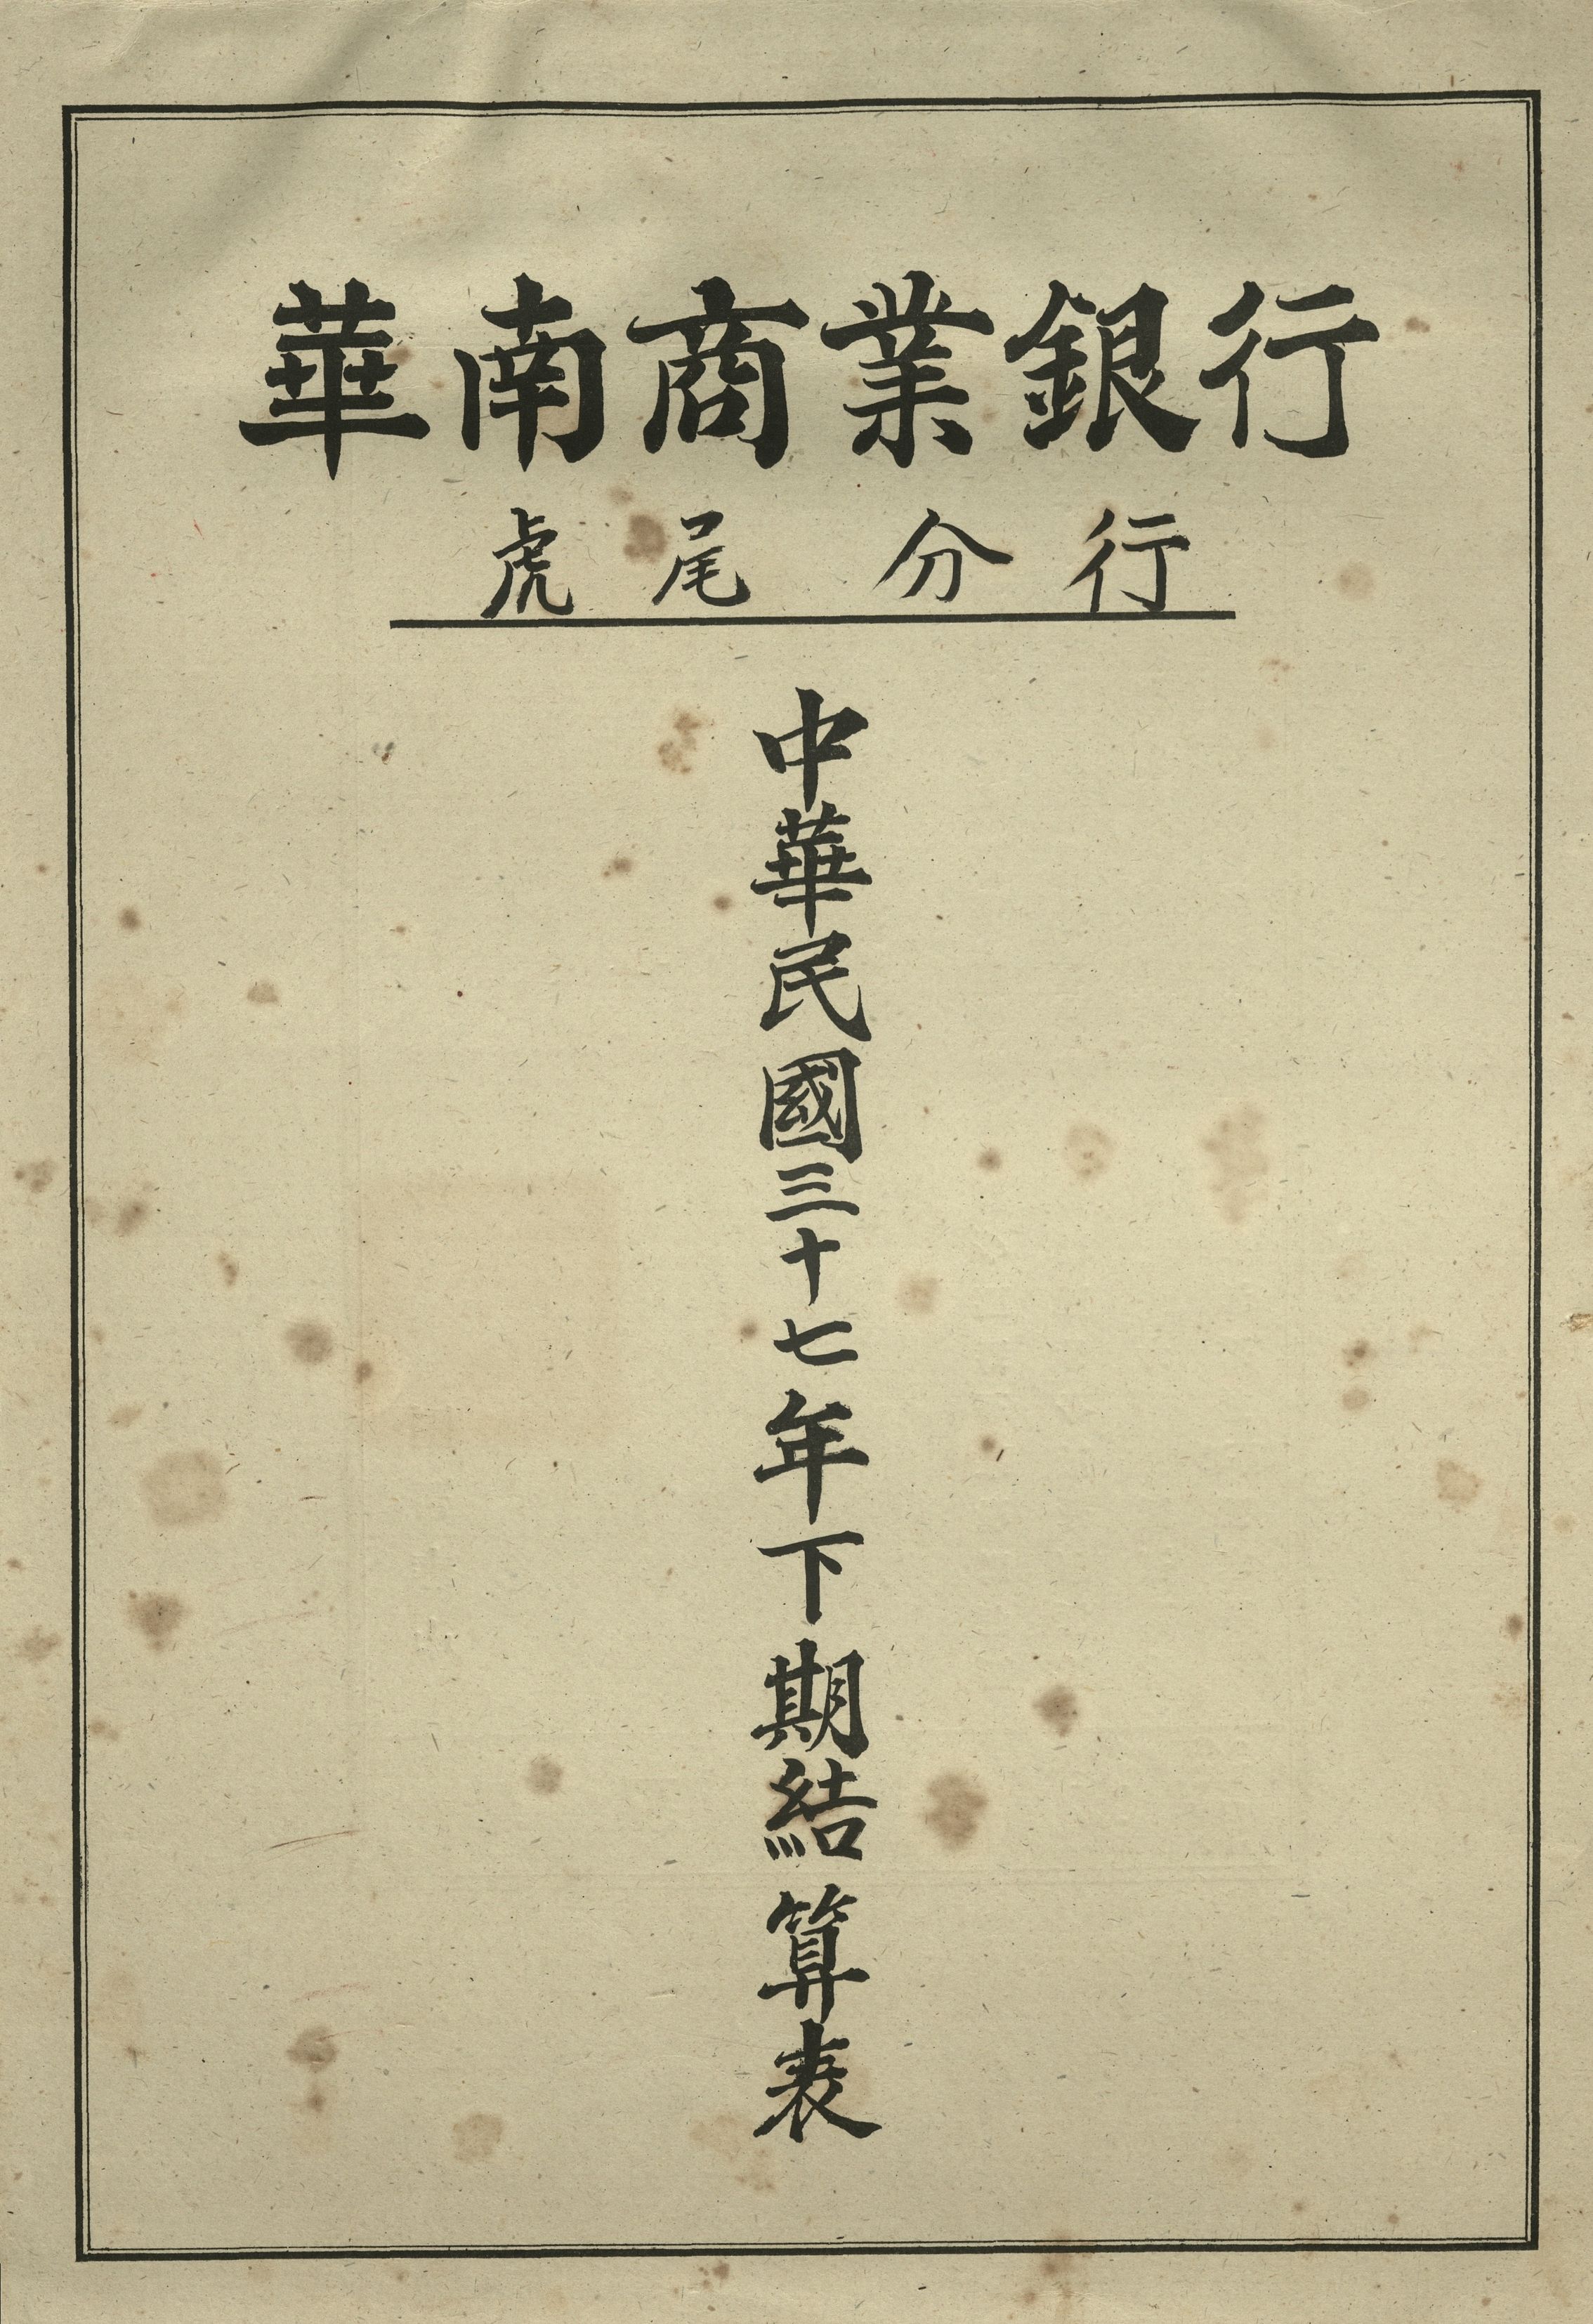 華南商業銀行
虎尾分行
中華民國三十七年下期結算表